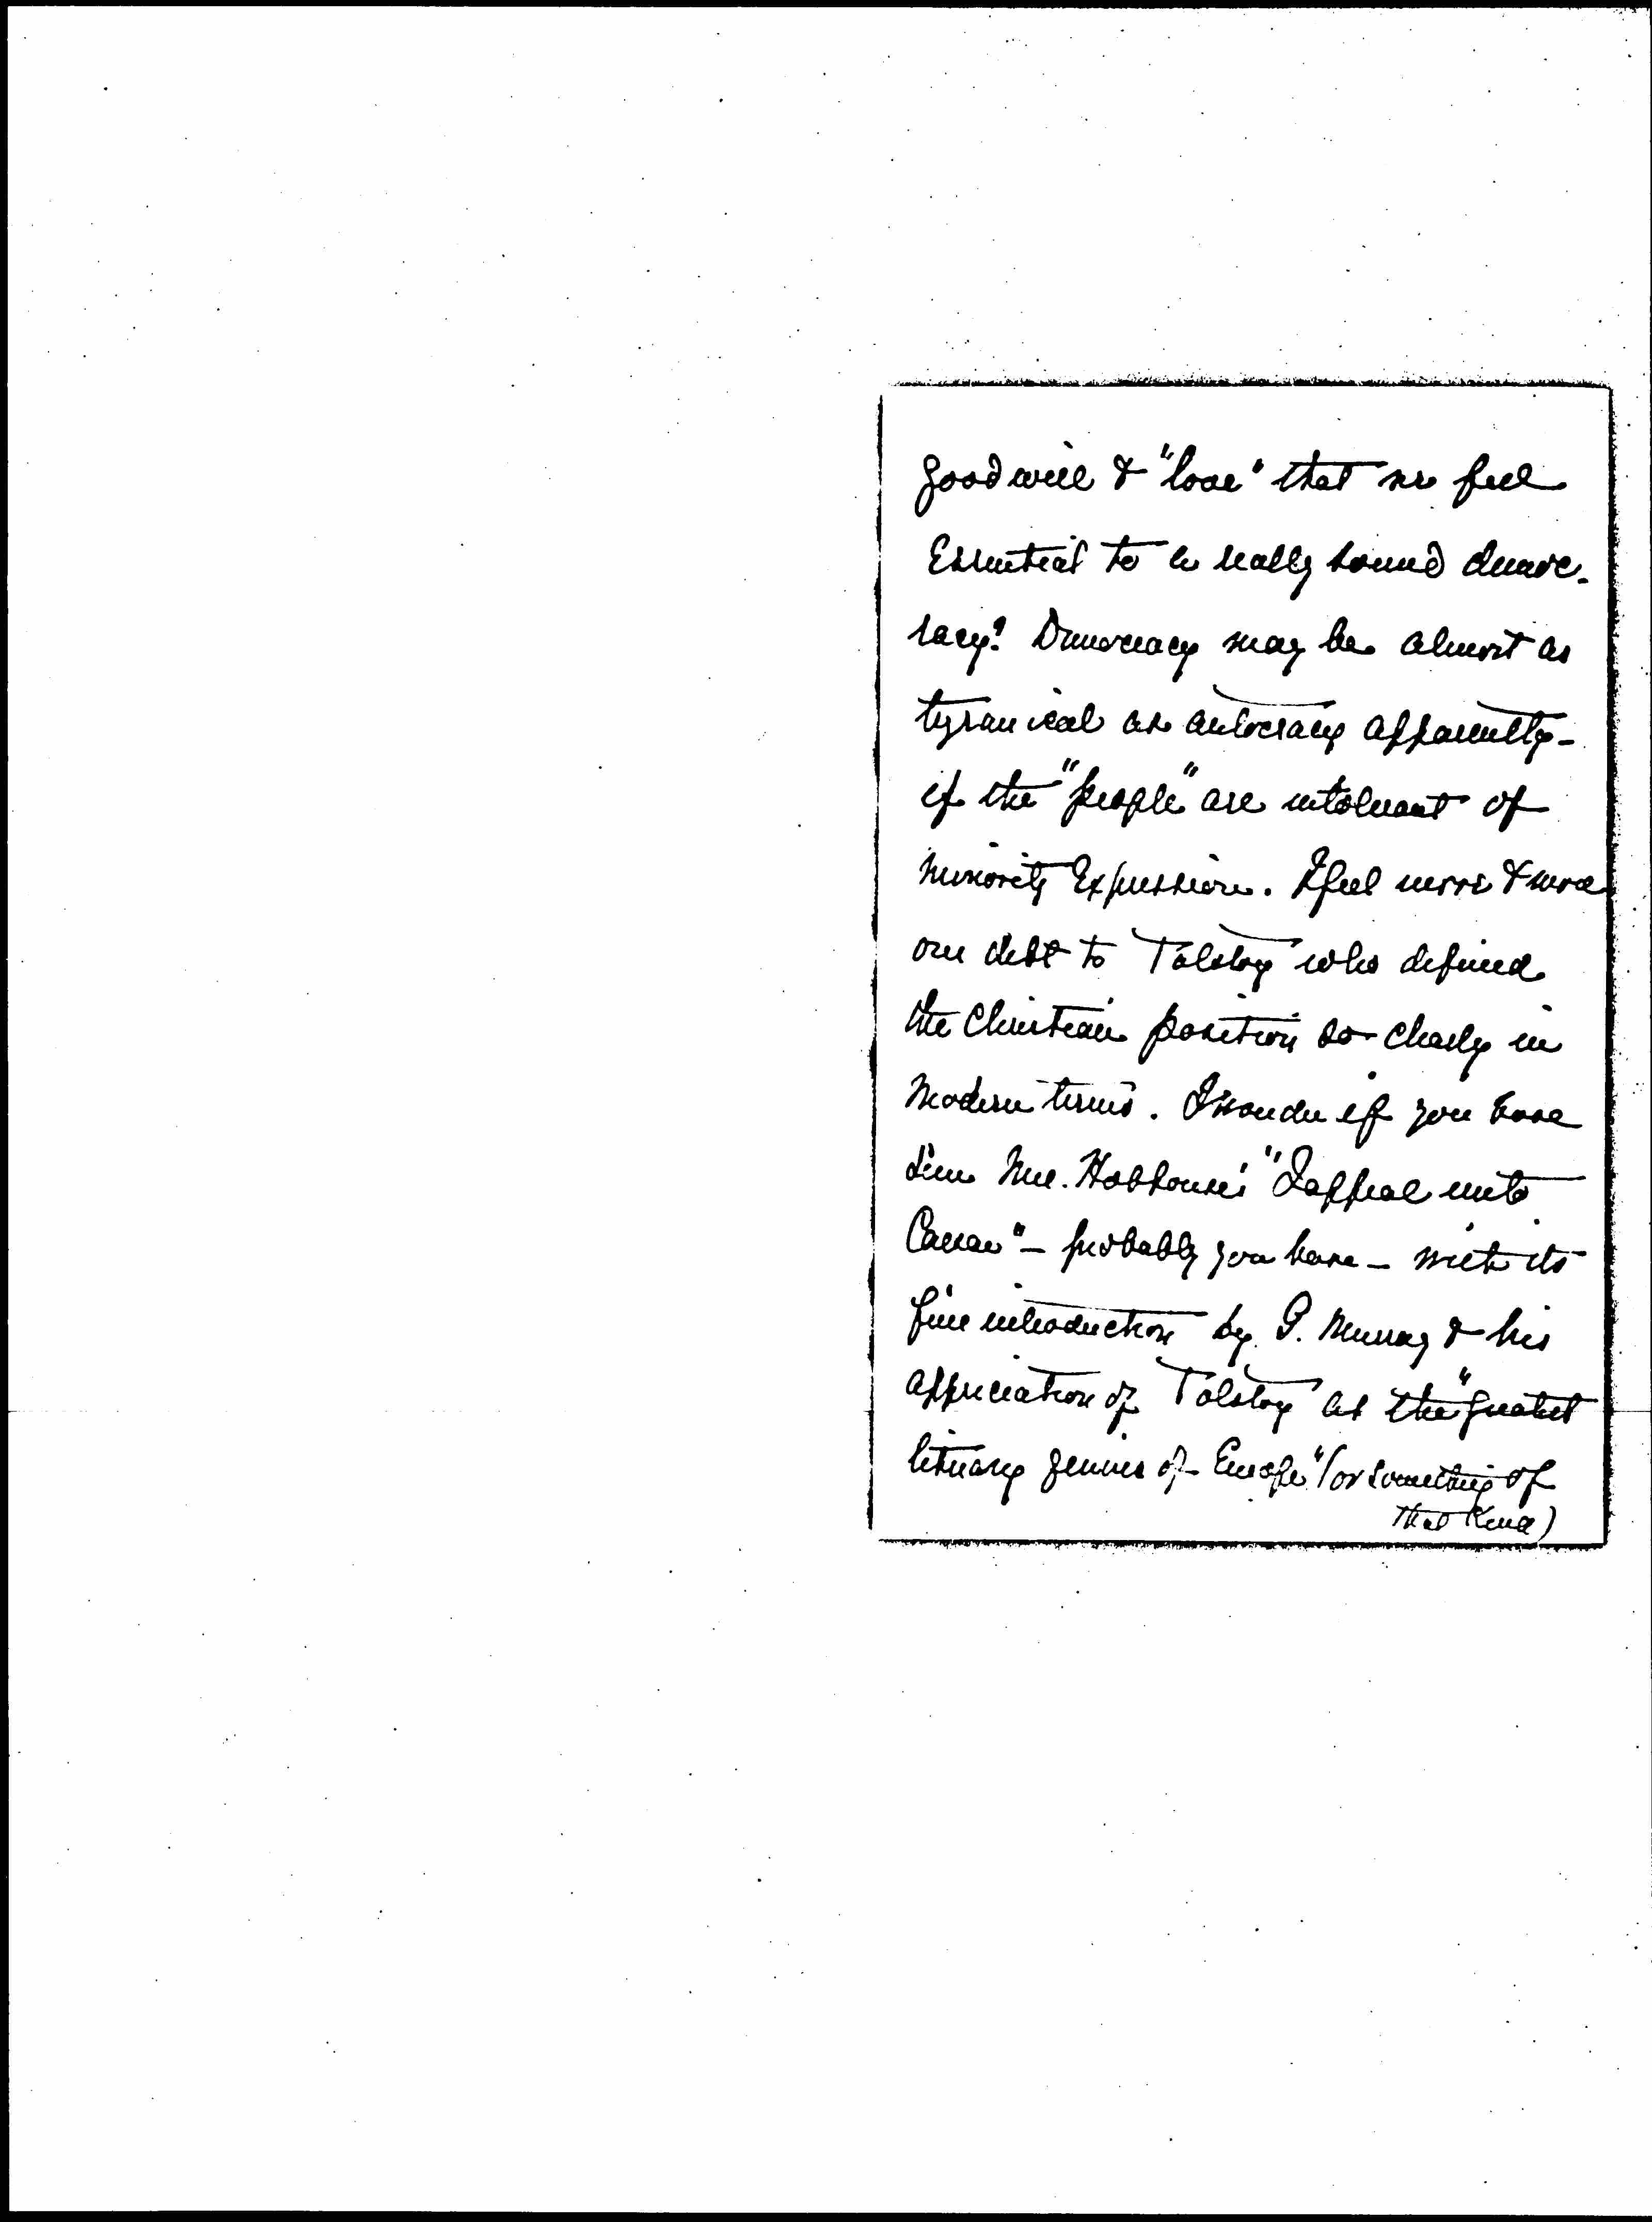 good will & "love" that we feel
essential to a really sound democ-
racy? Democracy may be almost as
tyranical as autocracy apparently -
if the "people" are intolerant of
minority expression. I feel more & more
our debt to Tolstoy who defined
the Christian position so clearly in
modern terms. I wonder if you have
seen Mrs. Hobhouse's "I appeal unto
Caesar" - probably you have - with its
fine introduction by G. Murray & his
appreciation of Tolstoy as the "greatest
literary genius of Europe" (or something of
that kind)